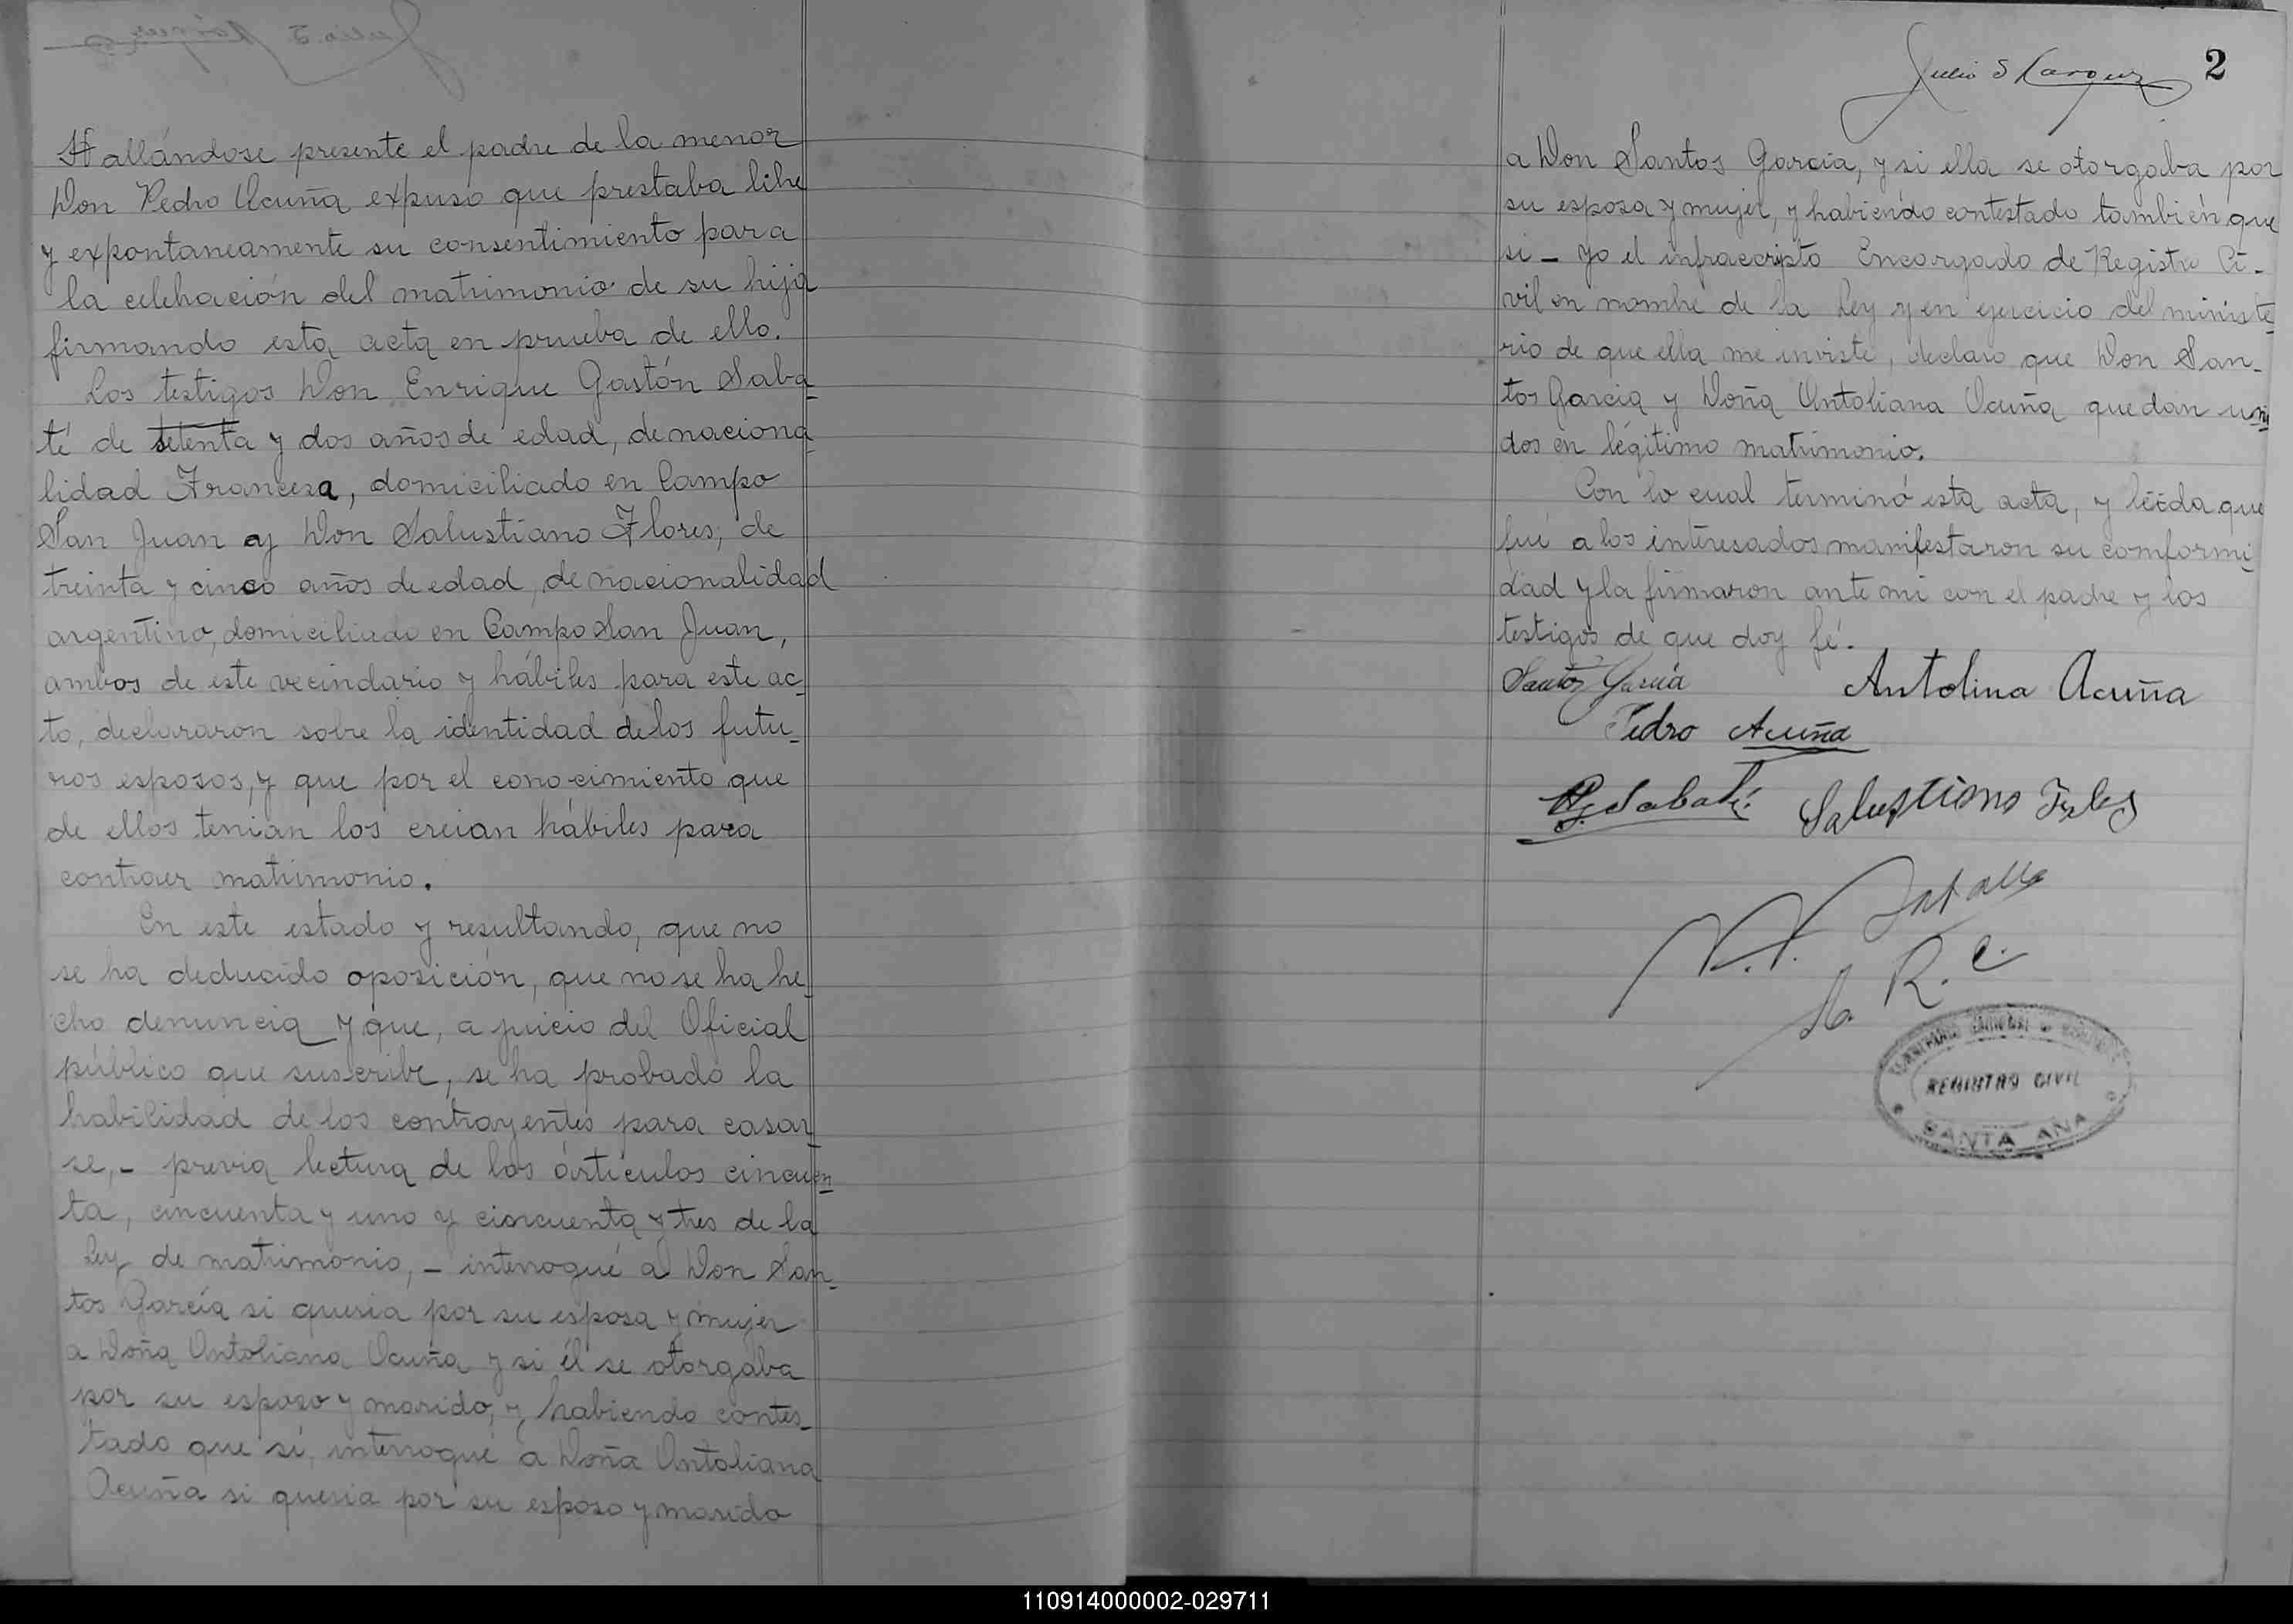 Hallándose presente el padre de la menor
Don Pedro Acuña expuso que prestaba libre
y expontaneamente su consentimiento para
la celebración del matrimonio de su hija
firmando esta acta en prueba de ello.
Los testigos Don Enrique Gastón Saba-
té de setenta y dos años de edad, de naciona-
lidad Francesa, domiciliado en Campo
San Juan y Don Salustiano Flores, de
treinta y cinco años de edad, de nacionalidad
argentino, domiciliado en Campo San Juan,
ambos de este vecindario y hábiles para este ac-
to, declararon sobre la identidad de los futu-
ros esposos, y que por el conocimiento que
de ellos tenian los creian hábiles para
contraer matrimonio.
En este estado y resultando, que no
se ha deducido oposición, que no se ha he-
cho denuncia y que, a juicio del Oficial
público que suscribe, se ha probado la
habilidad de los contrayentes para casar-
se, - previa lectura de los artículos cincuen-
ta, cincuenta y uno y cincuenta y tres de la
Ley de matrimonio, - interrogué a Don San-
tos García si queria por su esposa y mujer
a Doña Antoliana Acuña y si él se otorgaba
por su esposo y marido, y habiendo contes-
tado que sí, interrogué a Doña Antoliana
Acuña si queria por su esposo y marido
2
a Don Santos García, y si ella se otorgaba por
su esposa y mujer, y habiendo contestado también que
si - yo el infraecripto Encargado de Registro Ci-
vil en nombre de la Ley y en ejercicio del ministe-
rio de que ella me inviste, declaro que Don San-
tos García y Doña Antoliana Acuña quedan uni-
dos en légitimo matrimonio.
Con lo cual terminó esta acta, y leída que
fué a los interesados manifestaron su comformi-
dad y la firmaron ante mi con el padre y los
testigos de que doy fé.
Santos García Antolina Acuña
Pedro Acuña
Sabaté Salustiano
R. C.
REGISTRO CIVIL
SANTA ANA
110914000002-029711